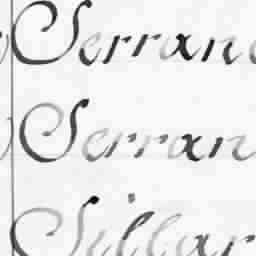 Serran
Serran
Sillar